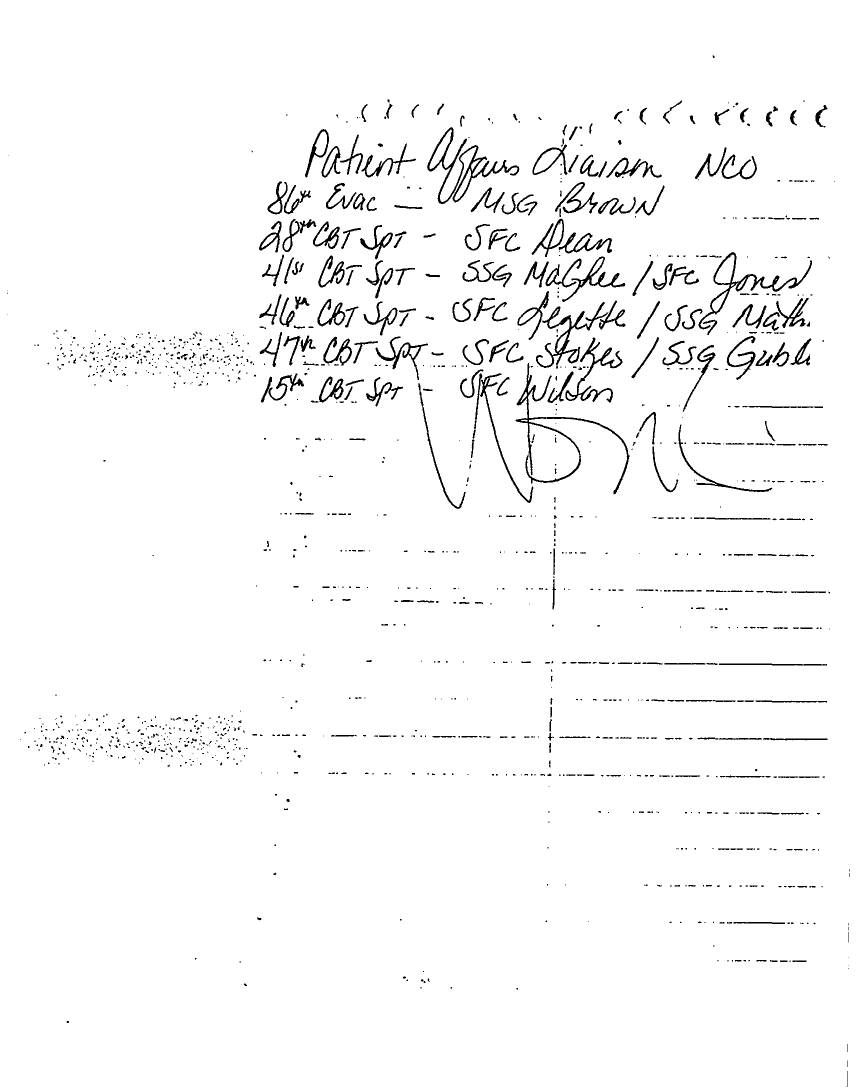 Patient Affairs Liaison NCO
86th Evac - MSG Brown
28th CBT Spt - SFC Dean
41st CBT Spt - SSG McGhee / SFC Jones
46th CBT Spt - SFC Legette / SSG Math
47th CBT Spt - SFC Stokes / SSG Gubli
15th CBT Spt - SFC Wilson